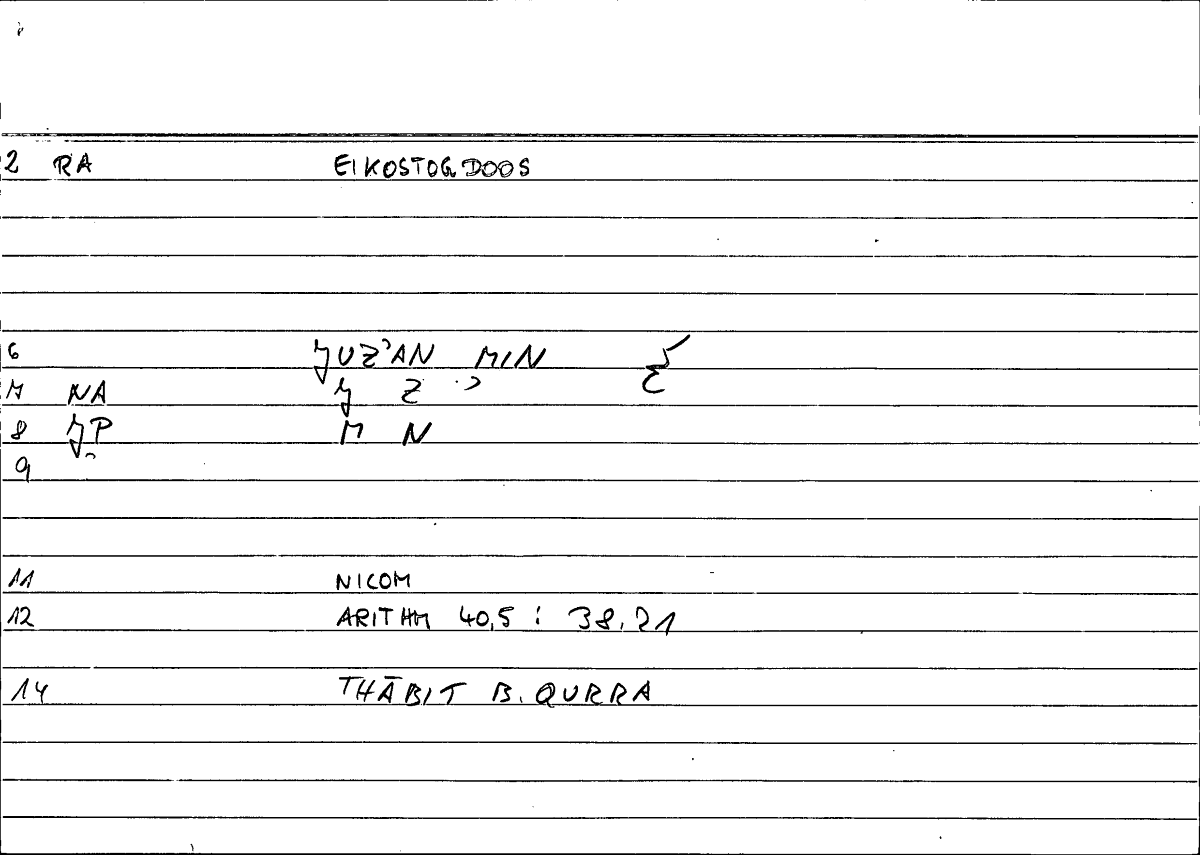 2 RA EIKOSTOGDOOS
6 ǦUZʾAN MIN
7 NA Ǧ Z ʾ
8 ǦP M N
9
11 NICOM
12 ARITHM 40,5 : 38.21
14 THĀBIT B. QURRA